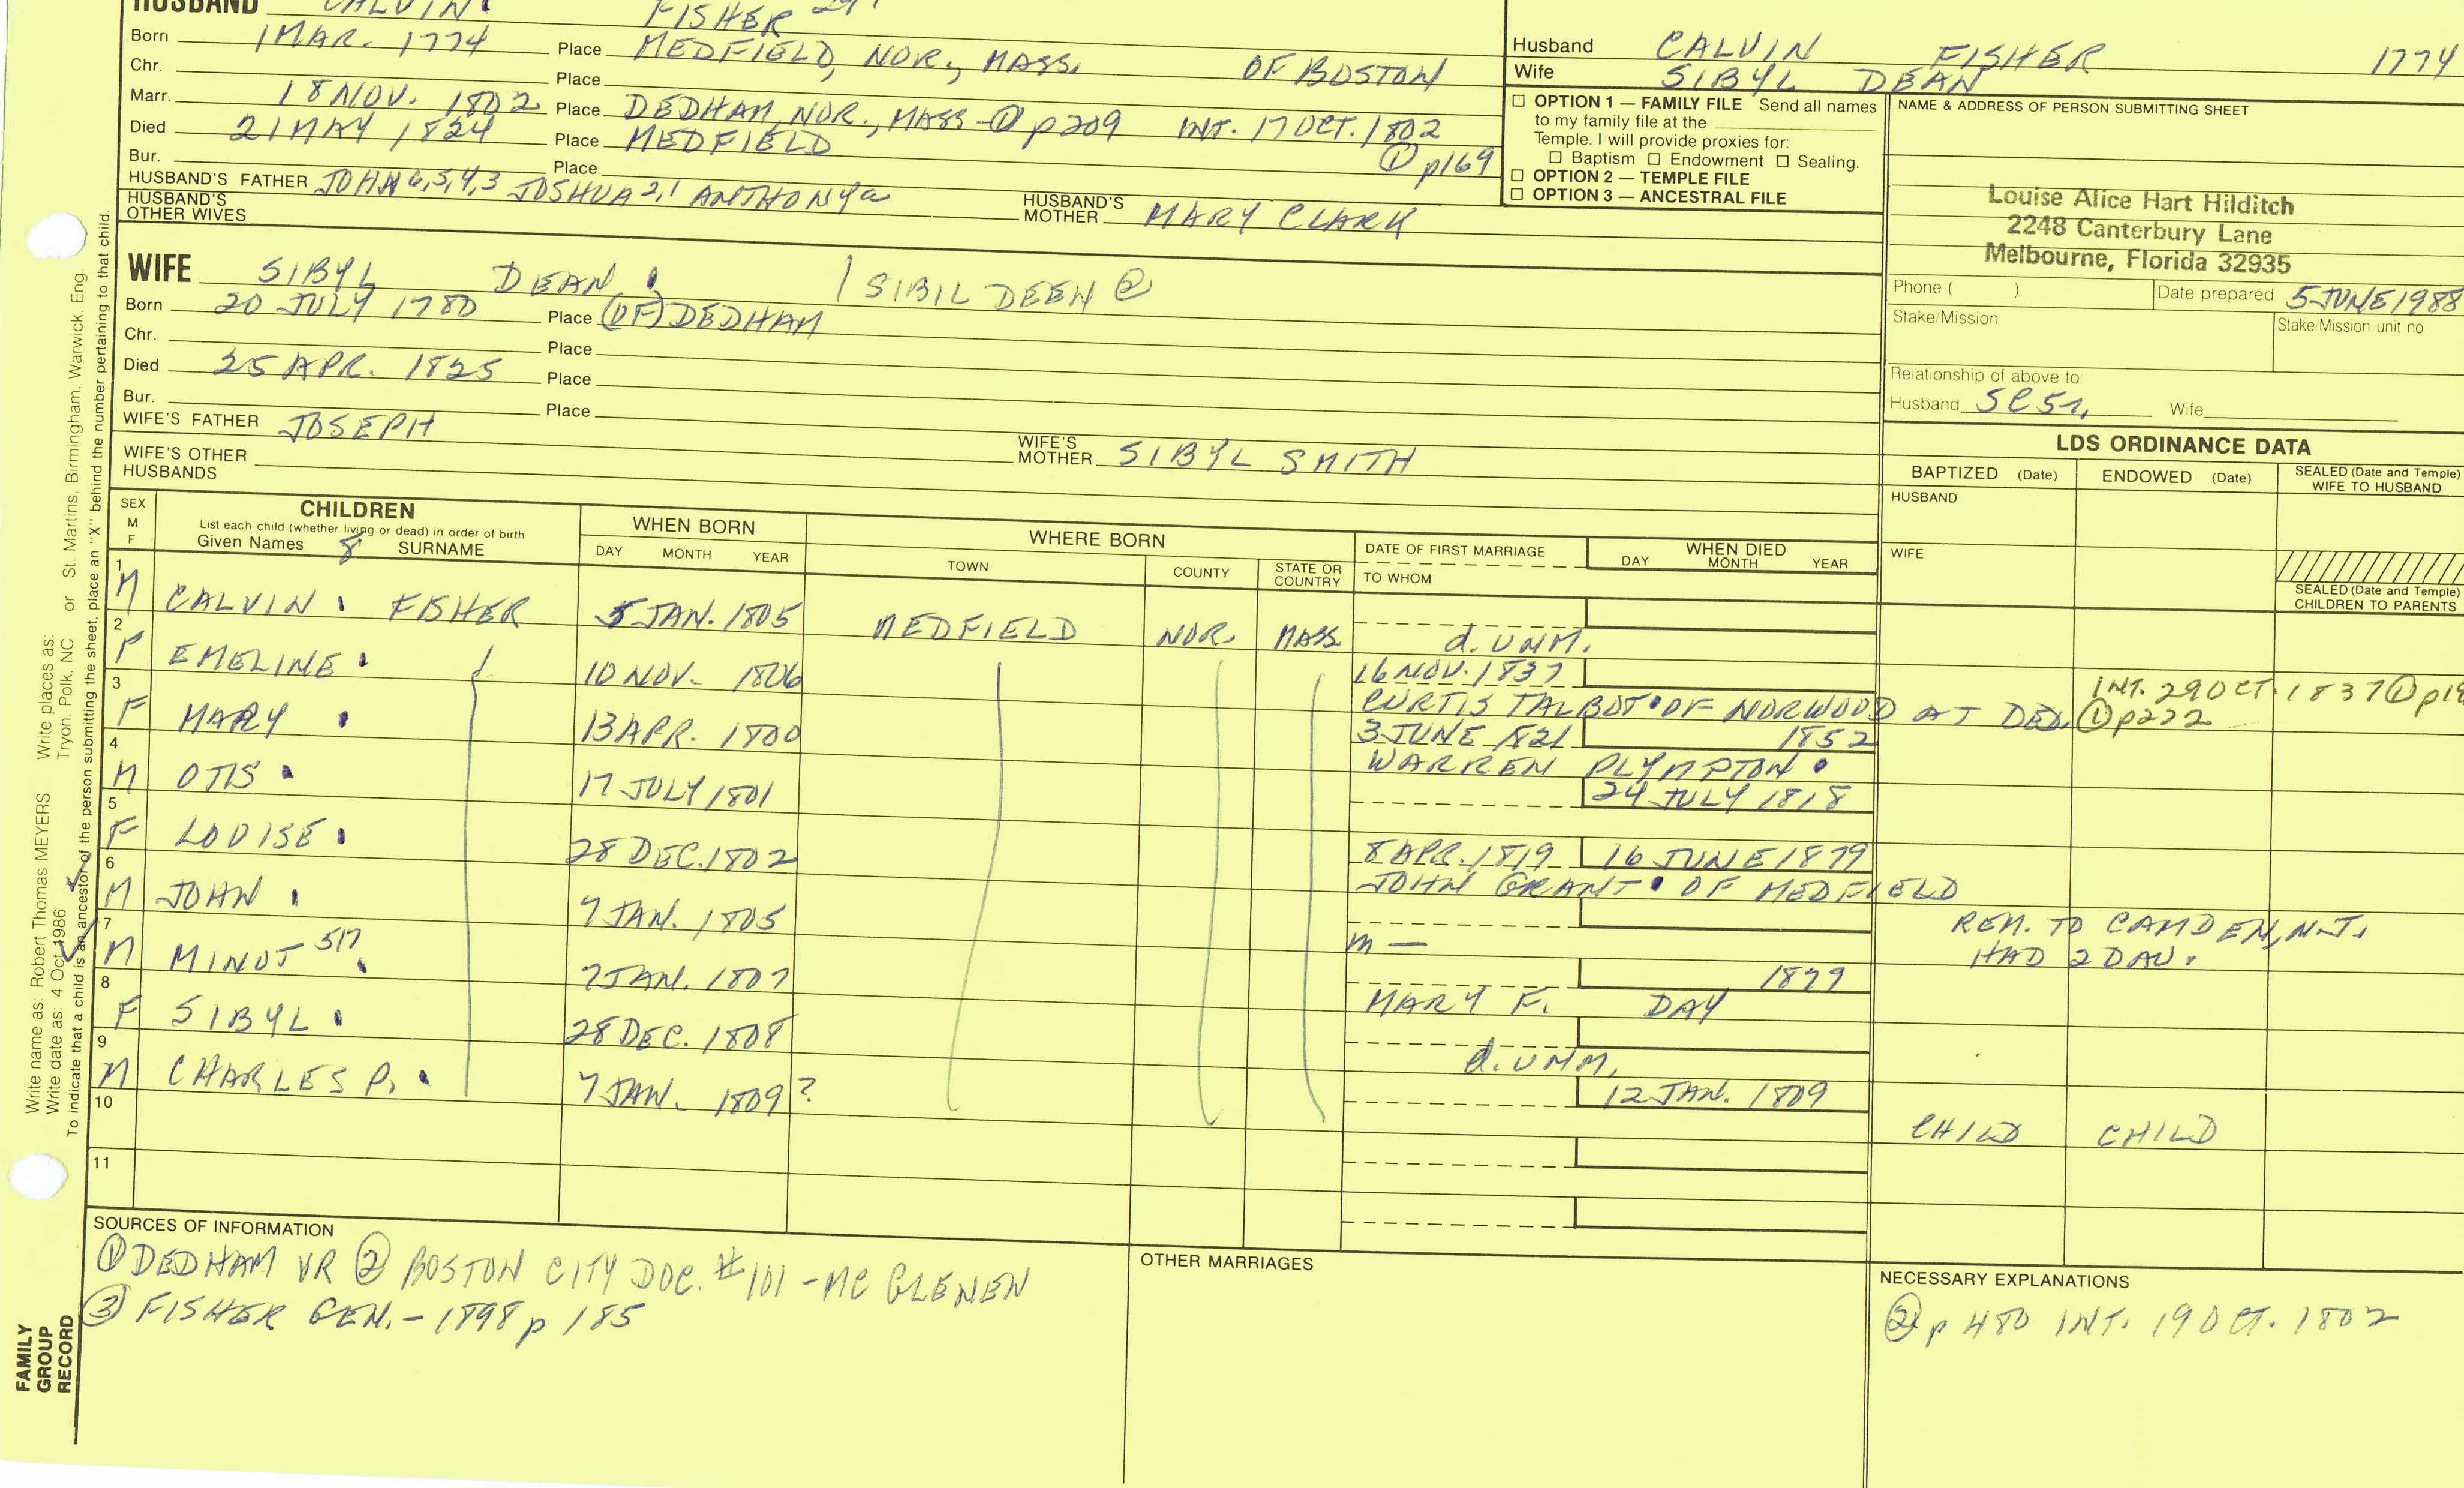 HUSBAND CALVIN FISHER 297
Born 1 MAR. 1774 Place MEDFIELD, NOR., MASS. OF BOSTON
Chr. Place
Marr. 18 NOV. 1802 Place DEDHAM, NOR., MASS ① p209 INT. 17 OCT. 1802
Died 21 MAY 1824 Place MEDFIELD ① p169
Bur. Place
HUSBAND'S FATHER JOHN 6,5,4,3 JOSHUA 2,1 ANTHONY a
HUSBAND'S MOTHER MARY CLARK
HUSBAND'S OTHER WIVES
WIFE SIBYL DEAN / SIBIL DEEN ②
Born 20 JULY 1780 Place (OF) DEDHAM
Chr. Place
Died 25 APR. 1825 Place
Bur. Place
WIFE'S FATHER JOSEPH
WIFE'S MOTHER SIBYL SMITH
WIFE'S OTHER HUSBANDS
Husband CALVIN FISHER 1774
Wife SIBYL DEAN
☐ OPTION 1 — FAMILY FILE Send all names
to my family file at the
Temple. I will provide proxies for:
☐ Baptism ☐ Endowment ☐ Sealing.
☐ OPTION 2 — TEMPLE FILE
☐ OPTION 3 — ANCESTRAL FILE
NAME & ADDRESS OF PERSON SUBMITTING SHEET
Louise Alice Hart Hilditch
2248 Canterbury Lane
Melbourne, Florida 32935
Phone ( ) Date prepared 5 JUNE 1988
Stake/Mission Stake/Mission unit no
Relationship of above to
Husband Wife
LDS ORDINANCE DATA
BAPTIZED (Date) ENDOWED (Date) SEALED (Date and Temple) WIFE TO HUSBAND
HUSBAND
WIFE
SEALED (Date and Temple) CHILDREN TO PARENTS
SEX M F
CHILDREN
List each child (whether living or dead) in order of birth
Given Names 8 SURNAME
WHEN BORN
DAY MONTH YEAR
WHERE BORN
TOWN COUNTY STATE OR COUNTRY
DATE OF FIRST MARRIAGE
TO WHOM
WHEN DIED
DAY MONTH YEAR
1 M CALVIN FISHER 5 JAN. 1805 MEDFIELD NOR. MASS d. UNM.
2 F EMELINE 10 NOV. 1806 16 NOV. 1837
CURTIS TALBOT OF NORWOOD AT DED. ① p222
INT. 29 OCT. 1837 ①
3 F MARY 13 APR. 1800 3 JUNE 1821 1852
WARREN PLYMPTON
4 M OTIS 17 JULY 1801 24 JULY 1818
5 F LOUISE 28 DEC. 1802 8 APR. 1819 16 JUNE 1879
JOHN GRANT OF MEDFIELD
6 M JOHN 7 JAN. 1805 m —
REM. TO CAMDEN, N.J.
HAD 2 DAU.
7 M MINOT 517 7 JAN. 1807 1879
MARY F. DAY
8 F SIBYL 28 DEC. 1808 d. UNM.
9 M CHARLES P. 7 JAN. 1809? 12 JAN. 1809
CHILD CHILD
10
11
SOURCES OF INFORMATION
① DEDHAM VR ② BOSTON CITY DOC. #101 - MC GLENEN
③ FISHER GEN. - 1898 p 185
OTHER MARRIAGES
NECESSARY EXPLANATIONS
② p 480 INT. 19 OCT. 1802
Write name as: Robert Thomas MEYERS Write places as: Tryon, Polk, NC or St. Martins, Birmingham, Warwick, Eng
Write date as: 4 Oct 1986
To indicate that a child is an ancestor of the person submitting the sheet, place an "X" behind the number pertaining to that child.
FAMILY
GROUP
RECORD